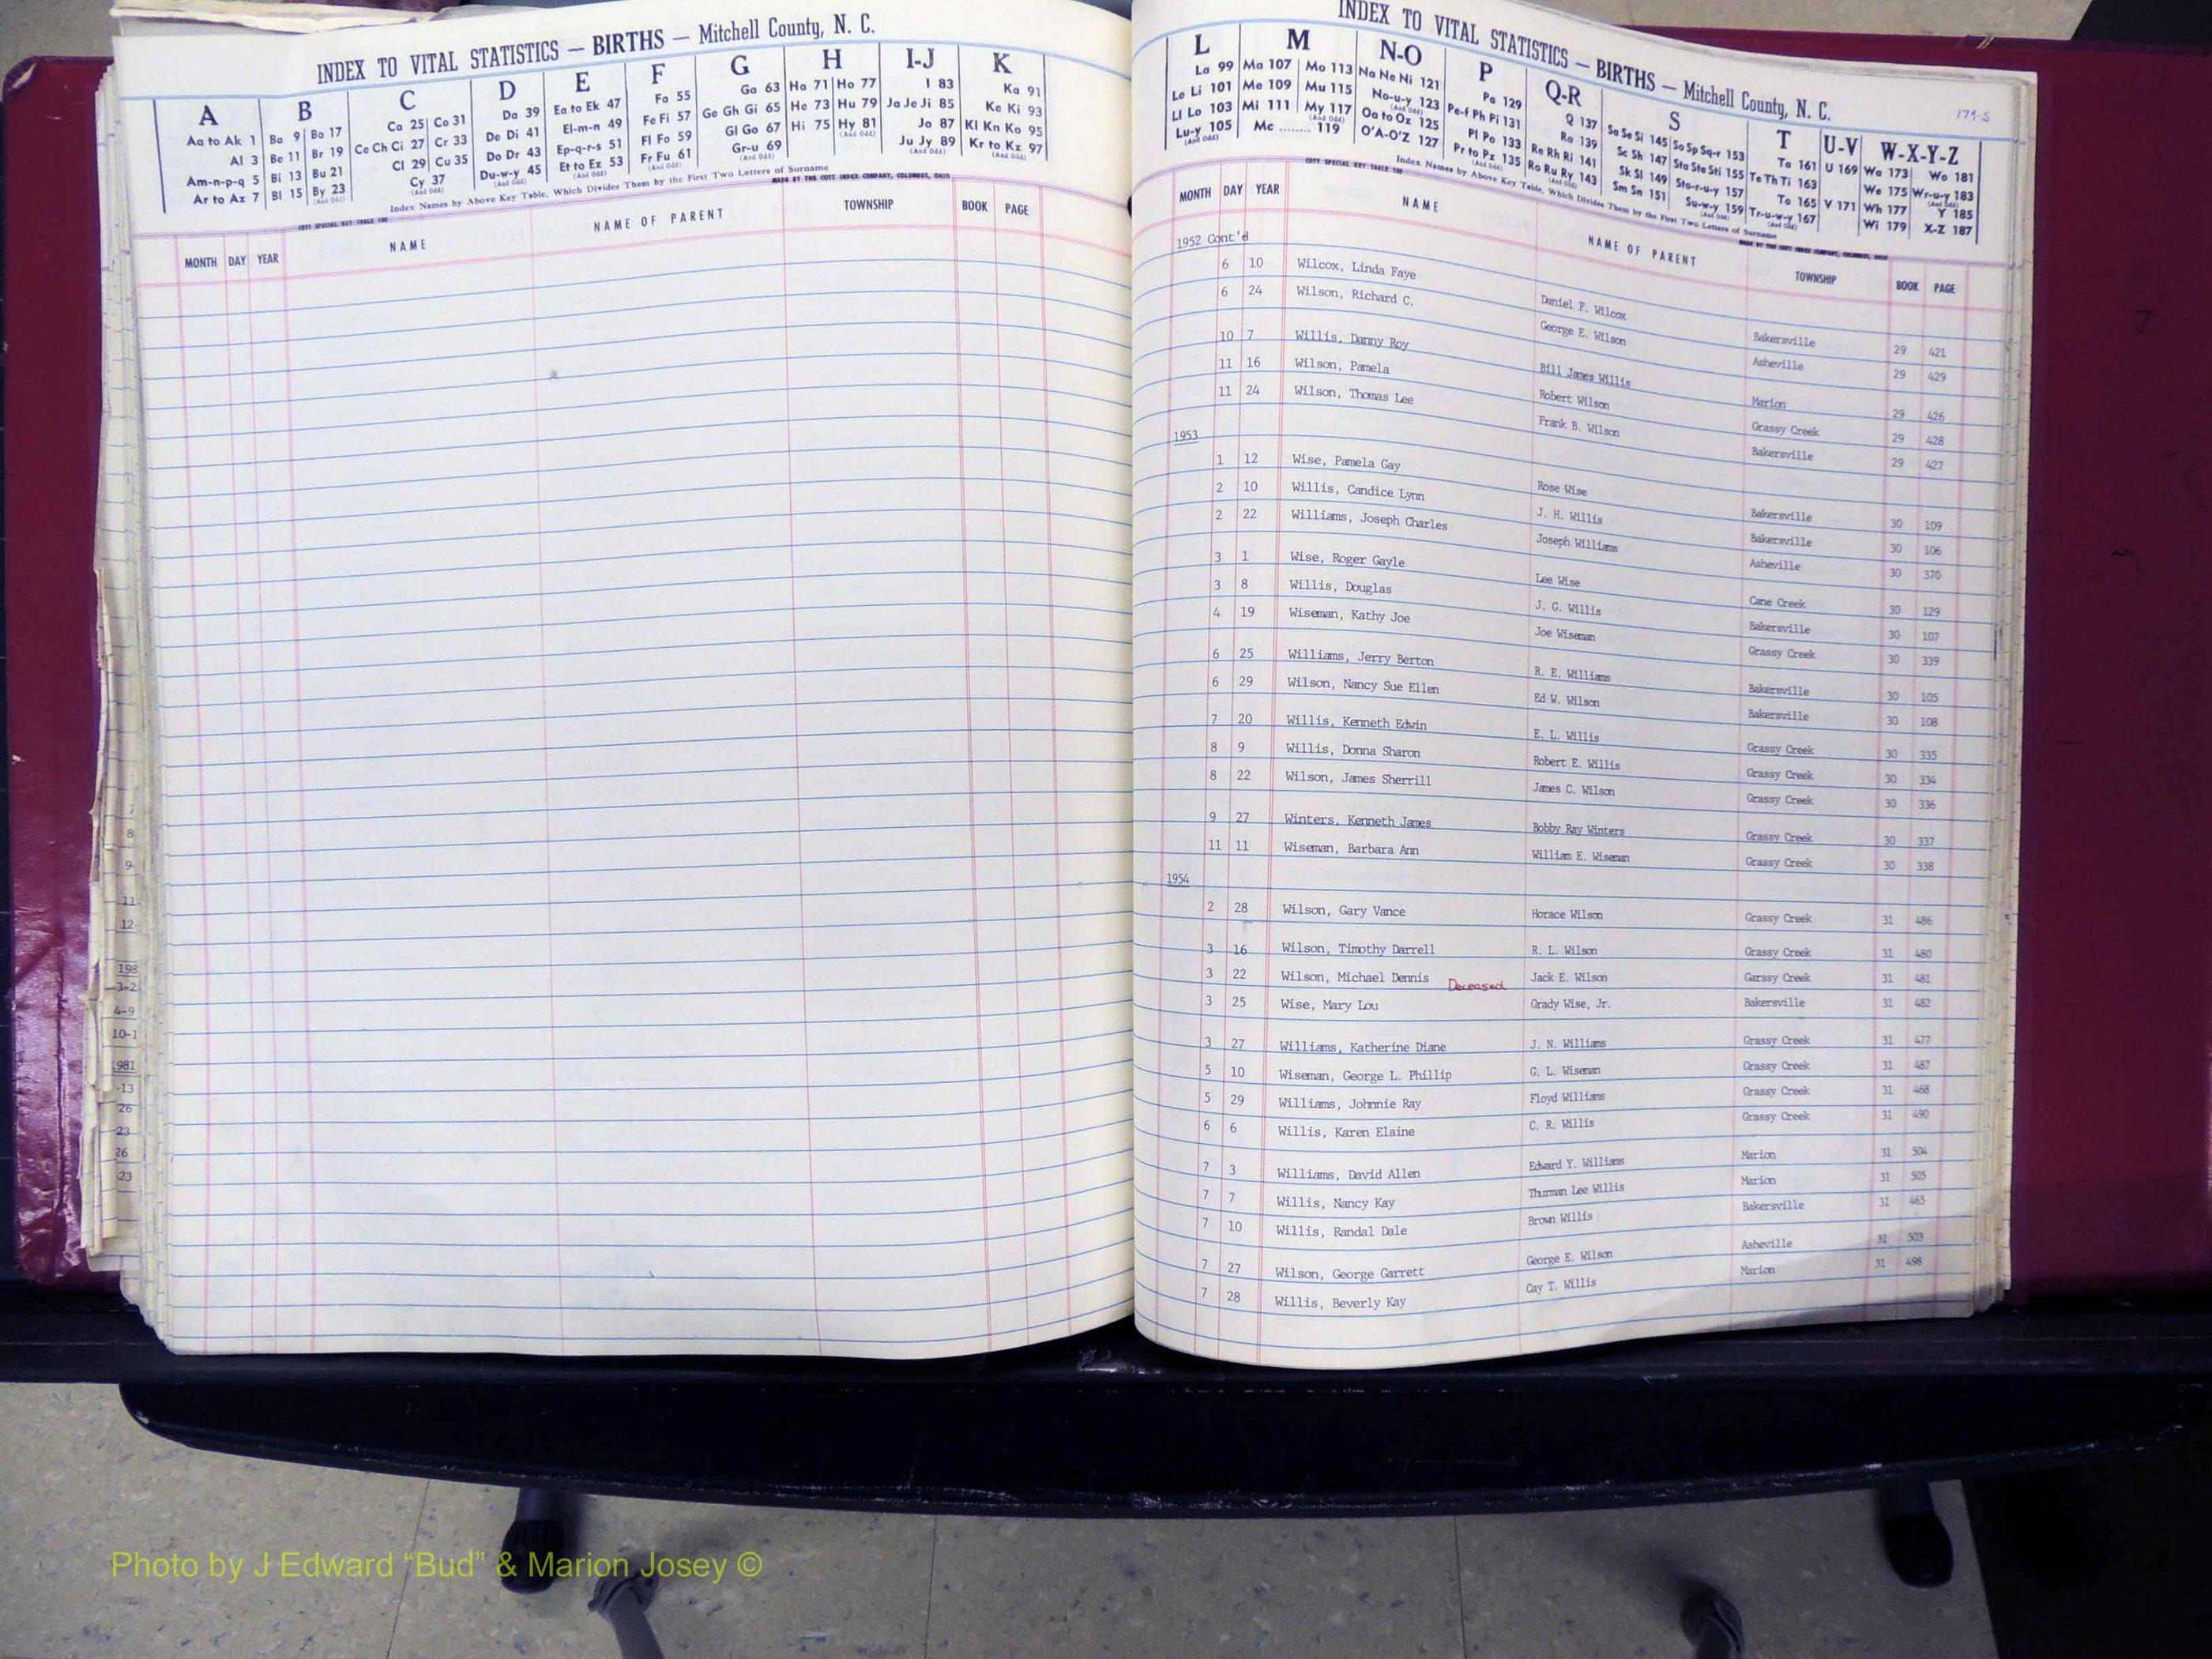 INDEX TO VITAL STATISTICS — BIRTHS — Mitchell County, N. C.
A B C D E F G H I-J K
Aa to Ak 1 Ba 9 Bo 17 Ca 25 Co 31 Da 39 Ea to Ek 47 Fa 55 Ga 63 Ha 71 Ho 77 I 83 Ka 91
Al 3 Be 11 Br 19 Ce Ch Ci 27 Cr 33 De Di 41 El-m-n 49 Fe Fi 57 Ge Gh Gi 65 He 73 Hu 79 Ja Je Ji 85 Ke Ki 93
Am-n-p-q 5 Bi 13 Bu 21 Cl 29 Cu 35 Do Dr 43 Ep-q-r-s 51 Fl Fo 59 Gl Go 67 Hi 75 Hy 81 (And Odd) Jo 87 Kl Kn Ko 95
Ar to Az 7 Bl 15 By 23 (And Odd) Cy 37 (And Odd) Du-w-y 45 (And Odd) Et to Ez 53 (And Odd) Fr Fu 61 (And Odd) Gr-u 69 (And Odd) Ju Jy 89 (And Odd) Kr to Kz 97 (And Odd)
Index Names by Above Key Table, Which Divides Them by the First Two Letters of Surname
COTT SPECIAL KEY TABLE 100 MADE BY THE COTT INDEX COMPANY, COLUMBUS, OHIO
MONTH DAY YEAR NAME NAME OF PARENT TOWNSHIP BOOK PAGE
7
8
9
11
12
198
3-2
4-9
10-1
981
-13
26
23
26
23
INDEX TO VITAL STATISTICS — BIRTHS — Mitchell County, N. C.
179-S
L M N-O P Q-R S T U-V W-X-Y-Z
La 99 Ma 107 Mo 113 Na Ne Ni 121 Pa 129 Q 137 Sa Se Si 145 So Sp Sq-r 153 Ta 161 U 169 Wa 173 Wo 181
Le Li 101 Me 109 Mu 115 No-u-y 123 (And Odd) Pe-f Ph Pi 131 Ra 139 Sc Sh 147 Sta Ste Sti 155 Te Th Ti 163 V 171 We 175 Wr-u-y 183 (And Odd)
Ll Lo 103 Mi 111 My 117 (And Odd) Oa to Oz 125 Pl Po 133 Re Rh Ri 141 Sk Sl 149 Sto-r-u-y 157 To 165 Wh 177 Y 185
Lu-y 105 (And Odd) Mc ........ 119 O'A-O'Z 127 Pr to Pz 135 (And Odd) Ro Ru Ry 143 (And Odd) Sm Sn 151 Su-w-y 159 (And Odd) Tr-u-w-y 167 (And Odd) Wi 179 X-Z 187
Index Names by Above Key Table, Which Divides Them by the First Two Letters of Surname
COTT SPECIAL KEY TABLE 100 MADE BY THE COTT INDEX COMPANY, COLUMBUS, OHIO
MONTH DAY YEAR NAME NAME OF PARENT TOWNSHIP BOOK PAGE
1952 Cont'd
6 10 Wilcox, Linda Faye Daniel F. Wilcox Bakersville 29 421
6 24 Wilson, Richard C. George E. Wilson Asheville 29 429
10 7 Willis, Danny Roy Bill James Willis Marion 29 426
11 16 Wilson, Pamela Robert Wilson Grassy Creek 29 428
11 24 Wilson, Thomas Lee Frank B. Wilson Bakersville 29 427
1953
1 12 Wise, Pamela Gay Rose Wise Bakersville 30 109
2 10 Willis, Candice Lynn J. H. Willis Bakersville 30 106
2 22 Williams, Joseph Charles Joseph Williams Asheville 30 370
3 1 Wise, Roger Gayle Lee Wise Cane Creek 30 129
3 8 Willis, Douglas J. G. Willis Bakersville 30 107
4 19 Wiseman, Kathy Joe Joe Wiseman Grassy Creek 30 339
6 25 Williams, Jerry Berton R. E. Williams Bakersville 30 105
6 29 Wilson, Nancy Sue Ellen Ed W. Wilson Bakersville 30 108
7 20 Willis, Kenneth Edwin E. L. Willis Grassy Creek 30 335
8 9 Willis, Donna Sharon Robert E. Willis Grassy Creek 30 334
8 22 Wilson, James Sherrill James C. Wilson Grassy Creek 30 336
9 27 Winters, Kenneth James Bobby Ray Winters Grassy Creek 30 337
11 11 Wiseman, Barbara Ann William E. Wiseman Grassy Creek 30 338
1954
2 28 Wilson, Gary Vance Horace Wilson Grassy Creek 31 486
3 16 Wilson, Timothy Darrell R. L. Wilson Grassy Creek 31 480
3 22 Wilson, Michael Dennis Deceased Jack E. Wilson Garssy Creek 31 481
3 25 Wise, Mary Lou Grady Wise, Jr. Bakersville 31 482
3 27 Williams, Katherine Diane J. N. Williams Grassy Creek 31 477
5 10 Wiseman, George L. Phillip G. L. Wiseman Grassy Creek 31 487
5 29 Williams, Johnnie Ray Floyd Williams Grassy Creek 31 468
6 6 Willis, Karen Elaine C. R. Willis Grassy Creek 31 490
7 3 Williams, David Allen Edward Y. Williams Marion 31 504
7 7 Willis, Nancy Kay Thurman Lee Willis Marion 31 505
7 10 Willis, Randal Dale Brown Willis Bakersville 31 465
7 27 Wilson, George Garrett George E. Wilson Asheville 31 503
7 28 Willis, Beverly Kay Cay T. Willis Marion 31 498
Photo by J Edward “Bud” & Marion Josey ©